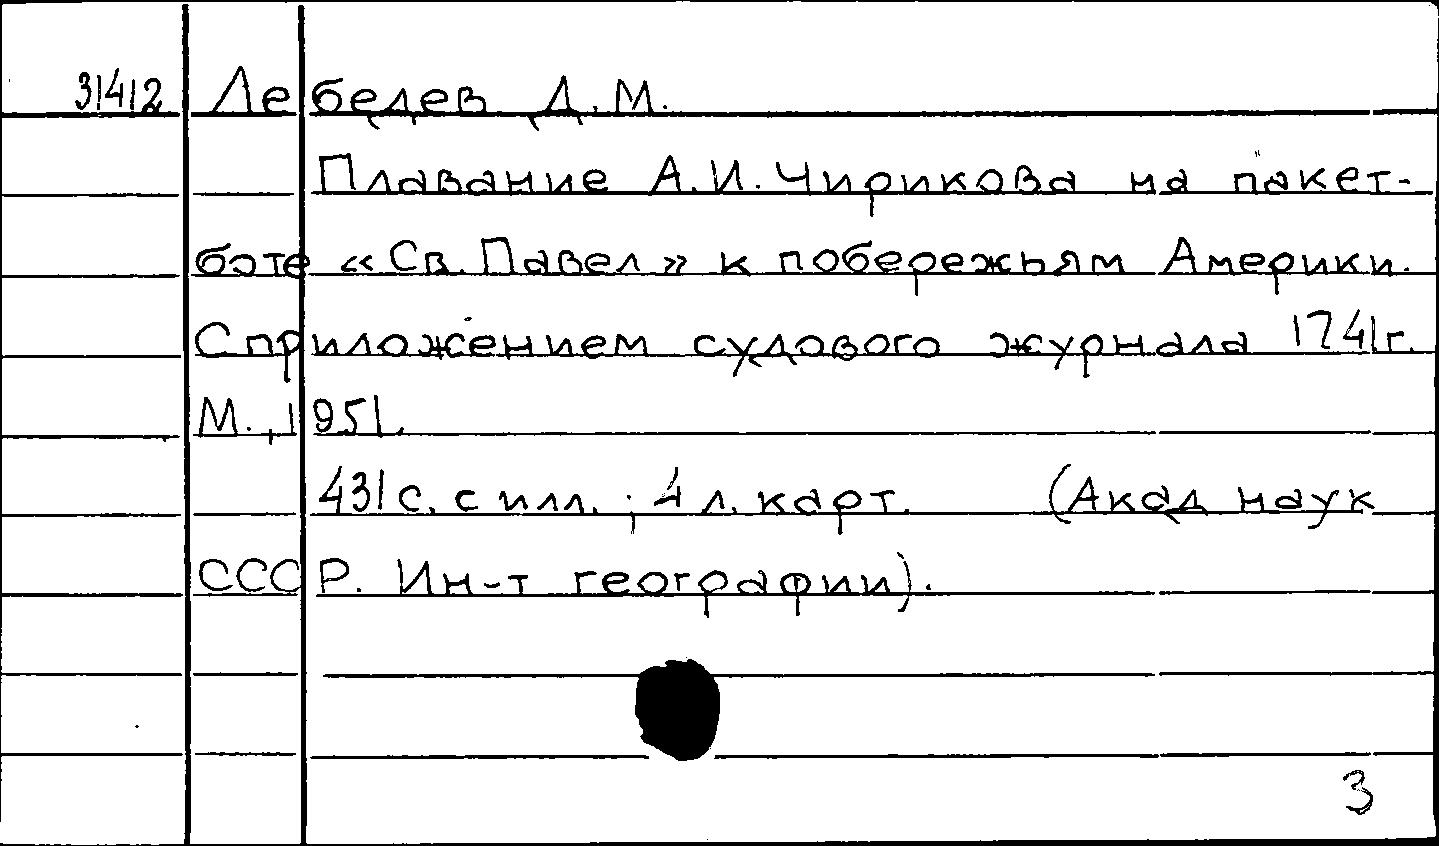 31412 Лебедев Д.М.
Плавание А.И. Чирикова на пакет-
боте «Св. Павел» к побережьям Америки.
С приложением судового журнала 1741г.
М., 1951.
431 с. с илл.; 4 л. карт. (Акад наук
СССР. Ин-т географии).
3